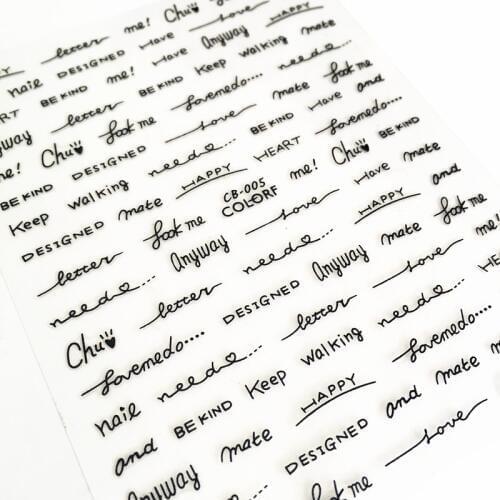 letter me! Chu Love HAPPY
nail DESIGNED Have Have Anyway Keep walking mate
BE KIND me! BE KIND Keep walking need....
letter lovemedo.... mate look me and
Anyway look me Love BE KIND Have
me! Chu DESIGNED need... HAPPY HEART me! Chu BE KIND
BE KIND
Keep walking mate CB-005 Have mate and
COLORF
DESIGNED look me Love HAPPY look me
letter Anyway need... Anyway mate me!
need... letter DESIGNED Love HEART
Chu need...
lovemedo.... need... Keep walking lovemedo....
nail BE KIND HAPPY and mate
and mate DESIGNED Love
Anyway look me